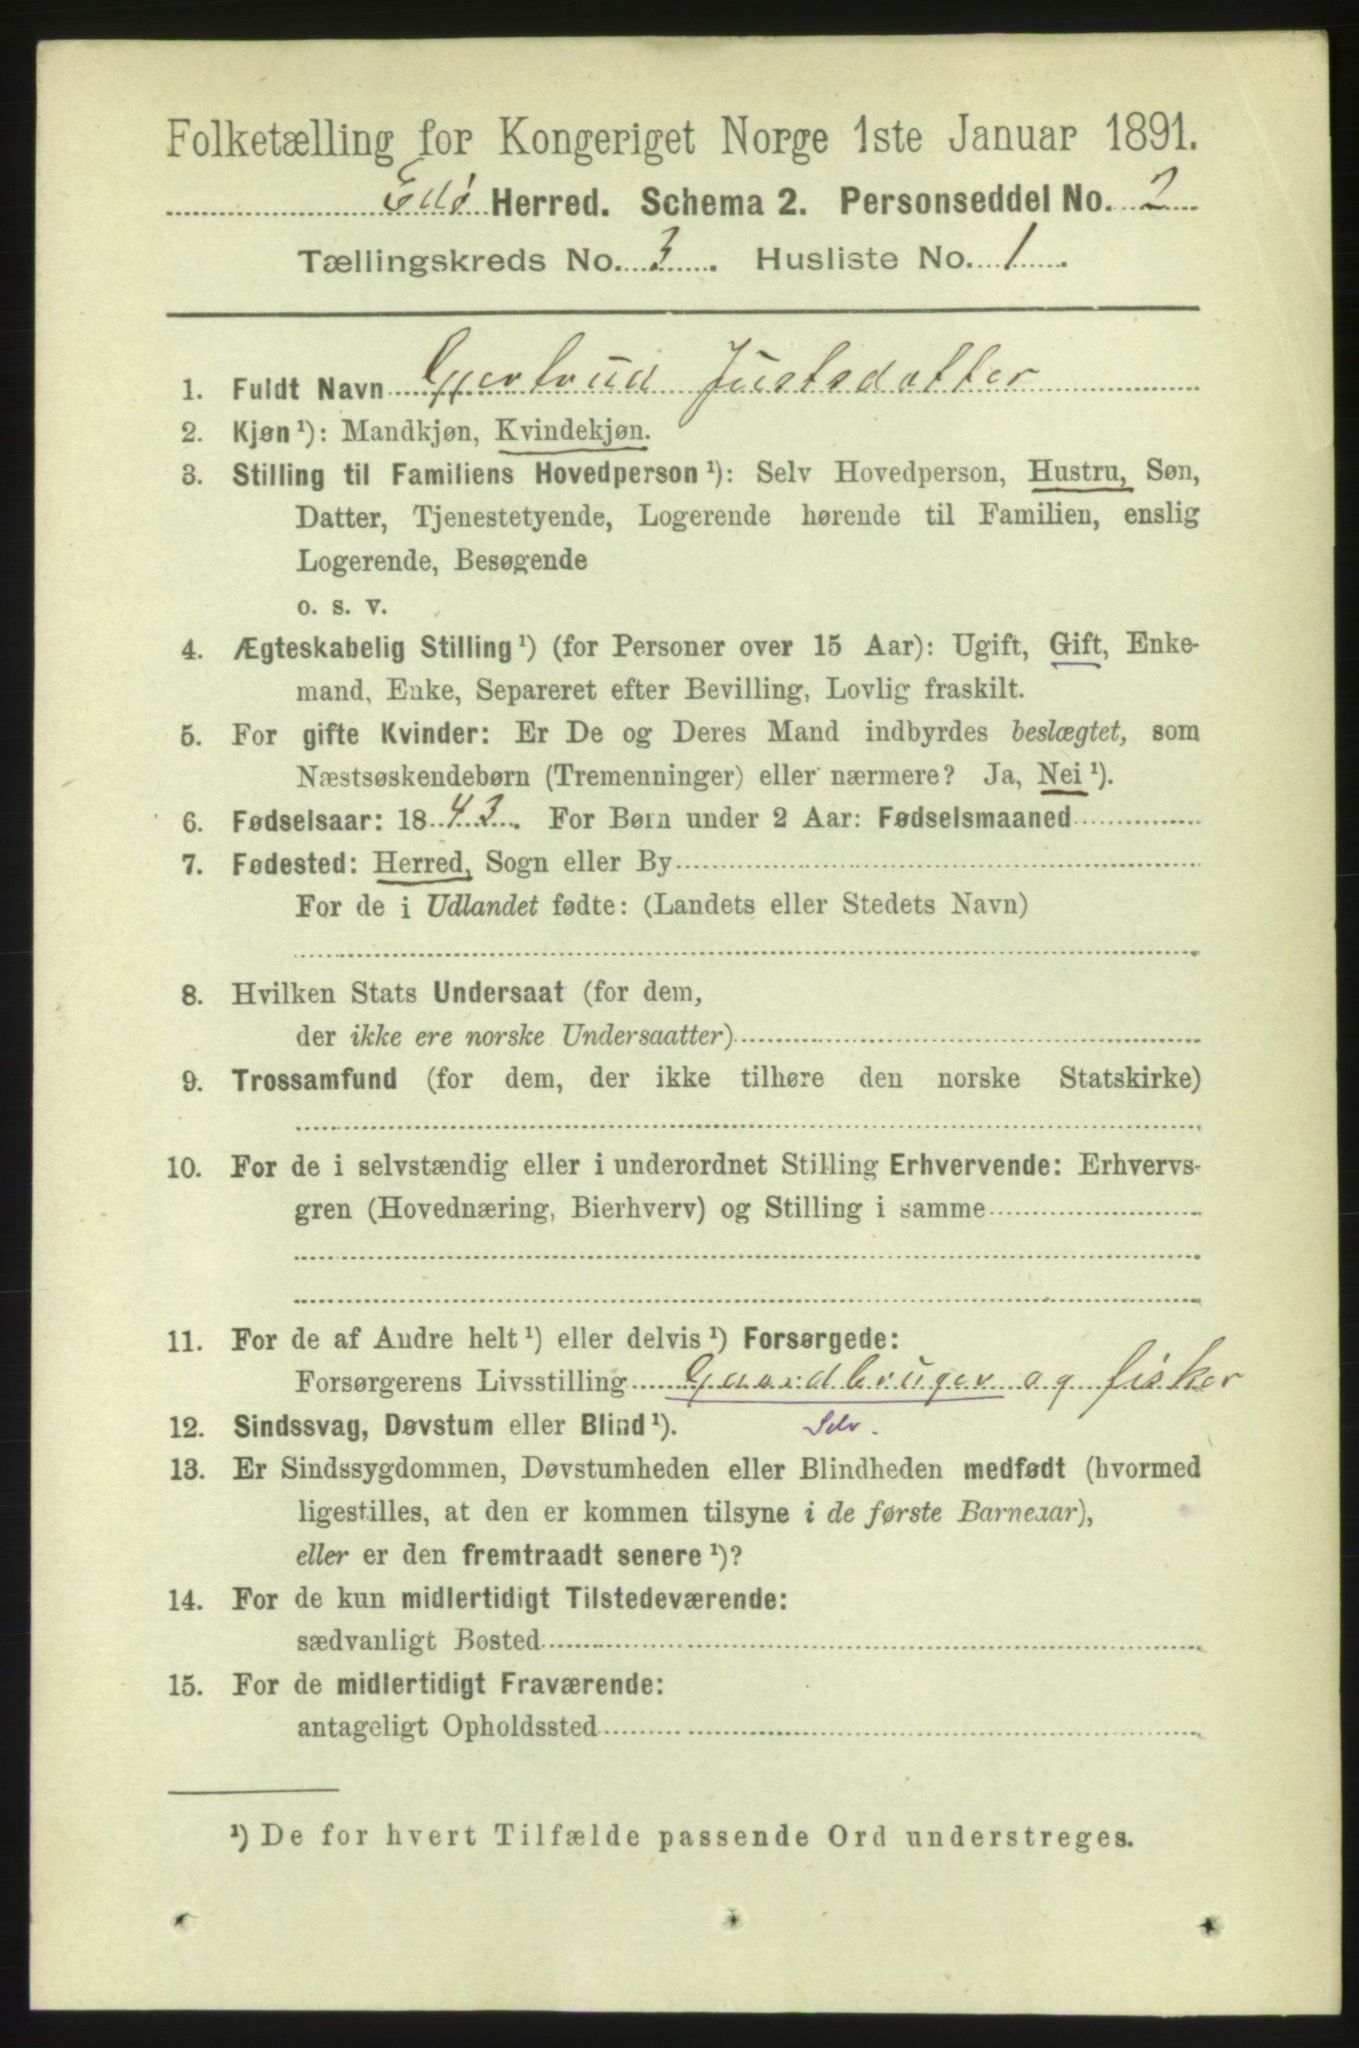 Folketælling for Kongeriget Norge 1ste Januar 1891.
Edø Herred. Schema 2. Personseddel No. 2
Tællingskreds No. 3. Husliste No. 1.
1. Fuldt Navn Gjertrud Justsdatter
2. Kjøn ¹): Mandkjøn, Kvindekjøn.
3. Stilling til Familiens Hovedperson ¹): Selv Hovedperson, Hustru, Søn,
Datter, Tjenestetyende, Logerende hørende til Familien, enslig
Logerende, Besøgende
o. s. v.
4. Ægteskabelig Stilling ¹) (for Personer over 15 Aar): Ugift, Gift, Enke-
mand, Enke, Separeret efter Bevilling, Lovlig fraskilt.
5. For gifte Kvinder: Er De og Deres Mand indbyrdes beslægtet, som
Næstsøskendebørn (Tremenninger) eller nærmere? Ja, Nei ¹).
6. Fødselsaar: 1843. For Børn under 2 Aar: Fødselsmaaned
7. Fødested: Herred, Sogn eller By
For de i Udlandet fødte: (Landets eller Stedets Navn)
8. Hvilken Stats Undersaat (for dem,
der ikke ere norske Undersaatter)
9. Trossamfund (for dem, der ikke tilhøre den norske Statskirke)
10. For de i selvstændig eller i underordnet Stilling Erhvervende: Erhvervs-
gren (Hovednæring, Bierhverv) og Stilling i samme
11. For de af Andre helt ¹) eller delvis ¹) Forsørgede:
Forsørgerens Livsstilling Gaardbruger og fisker
12. Sindssvag, Døvstum eller Blind ¹). Selv.
13. Er Sindssygdommen, Døvstumheden eller Blindheden medfødt (hvormed
ligestilles, at den er kommen tilsyne i de første Barneaar),
eller er den fremtraadt senere ¹)?
14. For de kun midlertidigt Tilstedeværende:
sædvanligt Bosted
15. For de midlertidigt Fraværende:
antageligt Opholdssted
¹) De for hvert Tilfælde passende Ord understreges.